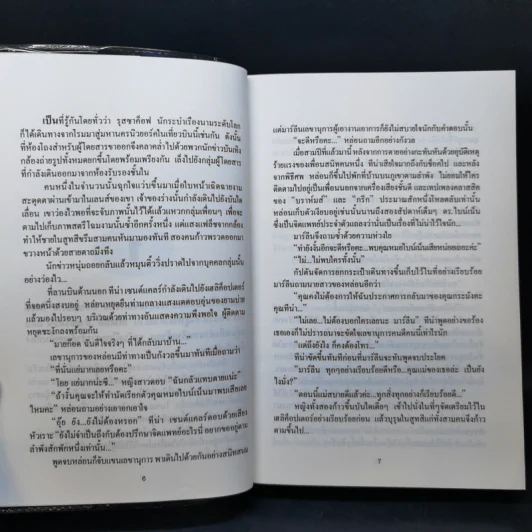 เป็นที่รู้กันโดยทั่วว่า รุสซาค็อฟ นักระบำเรื่องนามระดับโลก
ก็ได้เดินทางจากโรมมาสู่มหานครนิวยอร์คในเที่ยวบินนี้เช่นกัน ดังนั้น
ที่ห้องโถงสำหรับผู้โดยสารขาออกจึงคลาคล่ำไปด้วยพวกนักข่าวบันเทิง
กล้องถ่ายรูปทั้งหมดยกขึ้นโดยพร้อมเพรียงกัน เล็งไปยังกลุ่มผู้โดยสาร
ที่กำลังเดินออกมาจากห้องรับรองชั้นใน
คนหนึ่งในจำนวนนั้นฉุกใจแว่บขึ้นมาเมื่อใบหน้าเฉิดฉายงาม
สะคุดตาผ่านเข้ามาในเลนส์ของเขา เจ้าของร่างนั้นกำลังไปยังบันได
เลื่อน เขาว่องไวพอที่จะจับภาพนั้นไว้ได้แล้วแหวกกลุ่มเพื่อนๆ เพื่อจะ
ตามไปเก็บภาพสตรีโฉมงามนั้นซ้ำอีกครั้งหนึ่ง แต่แสงแฟล็ชจากกล้อง
ทำให้ชายในสูทสีขรึมสามคนหันมามองทันที สองคนก้าวพรวดออกมา
ขวางหน้าด้วยสายตาถมึงทึง
นักข่าวหนุ่มถอยกลับแล้วหมุนตัววิ่งปราดไปจากบุคคลกลุ่มนั้น
อย่างว่องไว...
ที่ลานบินด้านนอก ทีน่า เซนต์แคลร์กำลังเดินไปยังเฮลิคอปเตอร์
ที่จอดนิ่งสงบอยู่ หล่อนหยุดยืนท่ามกลางแสงแดดอบอุ่นของยามบ่าย
แล้วมองไปรอบๆ บริเวณด้วยท่าทางอันแสดงความพึงพอใจ ผู้ติดตาม
หยุดชะงักลงพร้อมกัน
"มายก๊อด ฉันดีใจจริงๆ ที่ได้กลับมาบ้าน..."
เลขานุการของหล่อนมีท่าทางเป็นกังวลขึ้นมาทันทีเมื่อถามว่า
"ที่นั่นแย่มากเลยหรือคะ"
"โอย แย่มากน่ะซิ..." หญิงสาวตอบ "ฉันกลัวแทบตายแน่ะ"
"ถ้างั้นคุณจะให้ทำนัดเรียกตัวคุณหมอไบน์เน็นมาพบเสียเลย
ไหมคะ" หล่อนถามอย่างเอาอกเอาใจ
"อุ๊ย ยัง...ยังไม่ต้องหรอก" ทีน่า เซนต์แคลร์ตอบด้วยเสียง
หัวเราะ "ยังไม่จำเป็นถึงกับต้องปรึกษาจิตแพทย์อะไรนี่ อยากขออยู่ตาม
ลำพังสักพักหนึ่งเท่านั้น..."
พูดจบหล่อนก็จับแขนเลขานุการ พาเดินไปด้วยกันอย่างสนิทสนม
6
แต่มาร์ลีนเลขานุการผู้เอางานเอาการก็ยังไม่สบายใจนักกับคำตอบนั้น
"จะดีหรือคะ..." หล่อนถามอีกอย่างกังวล
เมื่อสามปีที่แล้วมานี้ หลังจากการตายอย่างกะทันหันด้วยอุบัติเหตุ
ร้ายแรงของเพื่อนสนิทคนหนึ่ง ทีน่าเสียใจมากถึงกับช็อคไป และหลัง
จากพิธีศพ หล่อนก็ขึ้นไปพักที่บ้านบนภูเขาตามลำพัง ไม่ยอมให้ใคร
ติดตามไปอยู่เป็นเพื่อนนอกจากเครื่องเสียงชั้นดี และเทปเพลงคลาสสิค
ของ "บราห์มส์" และ "กรีก" ประมาณสักหนึ่งโหลตลับเท่านั้น
หล่อนเก็บตัวเงียบอยู่เช่นนั้นนานถึงสองสัปดาห์เต็มๆ ดร.ไบน์เน็น
ซึ่งเป็นจิตแพทย์ประจำตัวแถลงว่านั่นเป็นเรื่องที่ไม่น่าไว้ใจนัก...
มาร์ลีนจึงถามซ้ำด้วยความห่วงใย
"ทำยังงั้นอีกจะดีหรือคะ...พบคุณหมอไบน์เน็นเสียหน่อยเถอะค่ะ"
"ไม่...ไม่พบใครทั้งนั้น"
กัปตันจัดการยกกระเป๋าเดินทางขึ้นเก็บไว้ในที่อย่างเรียบร้อย
มาร์ลีนถามนายสาวของหล่อนอีกว่า
"คุณคงไม่ต้องการให้ฉันประกาศการกลับมาของคุณกระมังคะ
คุณทีน่า"
"ไม่เลย...ไม่ต้องบอกใครเลยนะ มาร์ลีน" ทีน่าพูดอย่างขอร้อง
เธอเองก็ไม่ปรารถนาจะขัดใจเลขานุการคนดีคนนี้เท่าไรนัก
"แต่ถึงยังไง ก็คงต้องโทร..."
ทีน่าขัดขึ้นทันทีก่อนที่มาร์ลีนจะทันพูดจบประโยค
"มาร์ลีน ทุกๆอย่างเรียบร้อยดีหรือ...คุณแม่ของเธอล่ะ เป็นยัง
ไงมั่ง?"
"ตอนนี้แม่สบายดีแล้วค่ะ...ทุกสิ่งทุกอย่างก็เรียบร้อยดี..."
หญิงทั้งสองก้าวขึ้นบันไดเตี้ยๆ เข้าไปนั่งในที่ๆจัดเตรียมไว้ใน
เฮลิคอปเตอร์อย่างเรียบร้อยก่อน แล้วบุรุษในสูทสีเข้มทั้งสามคนจึงก้าว
ตามขึ้นไป...
7